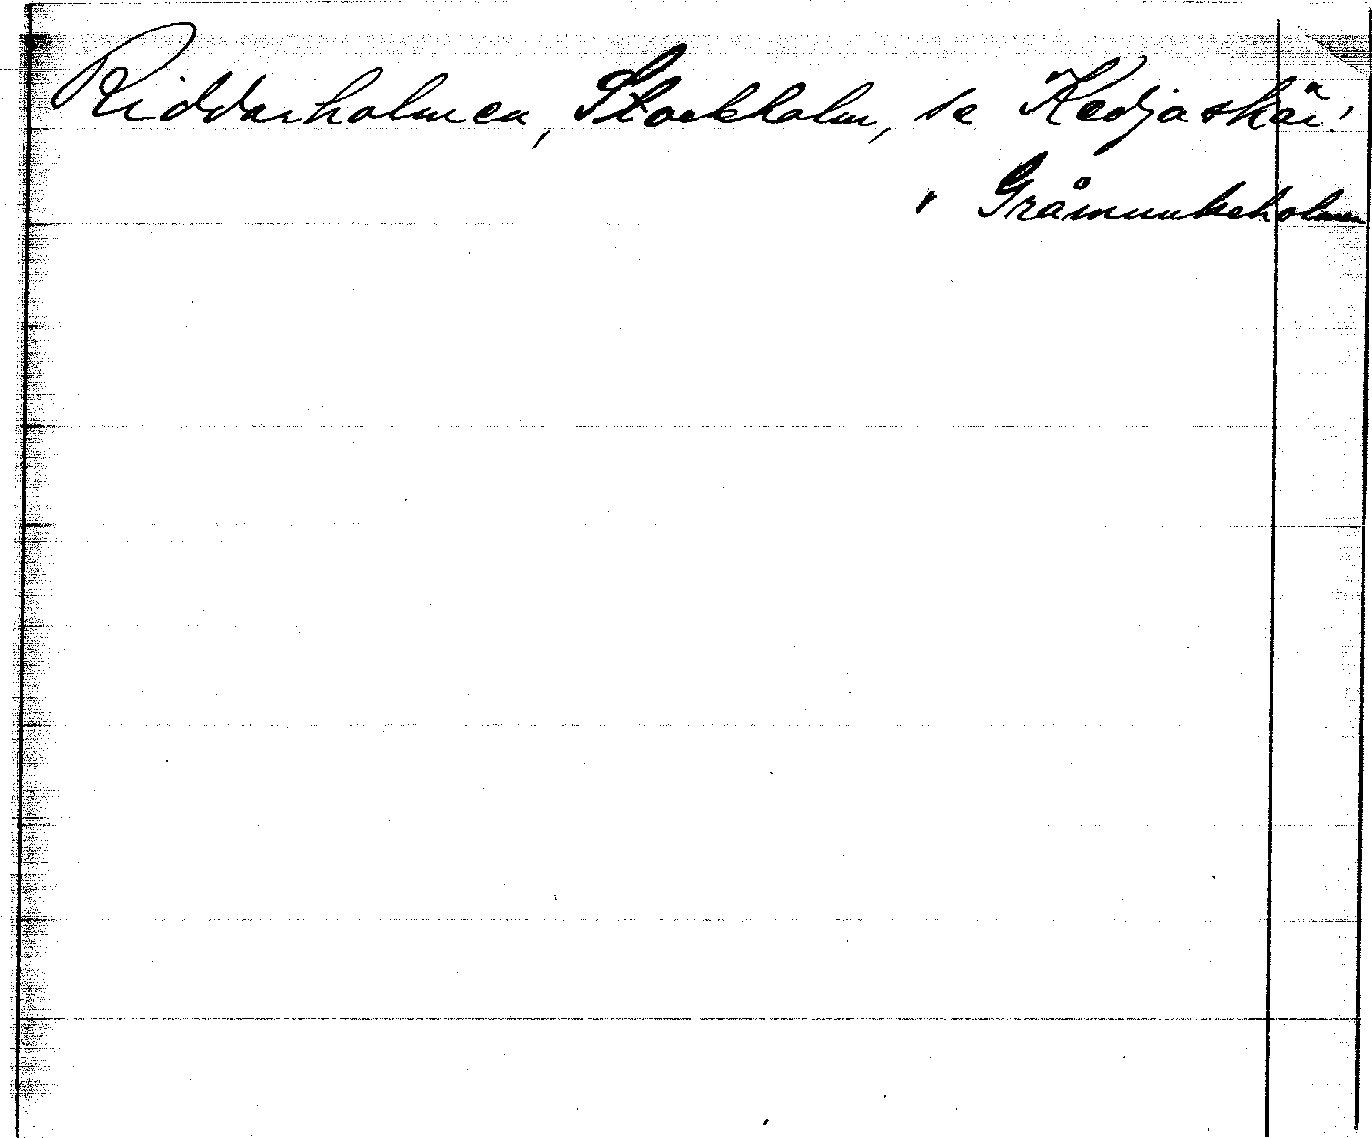 Riddarholmen, Stockholm, se Kedjeskär!
" Gråmunkeholmen